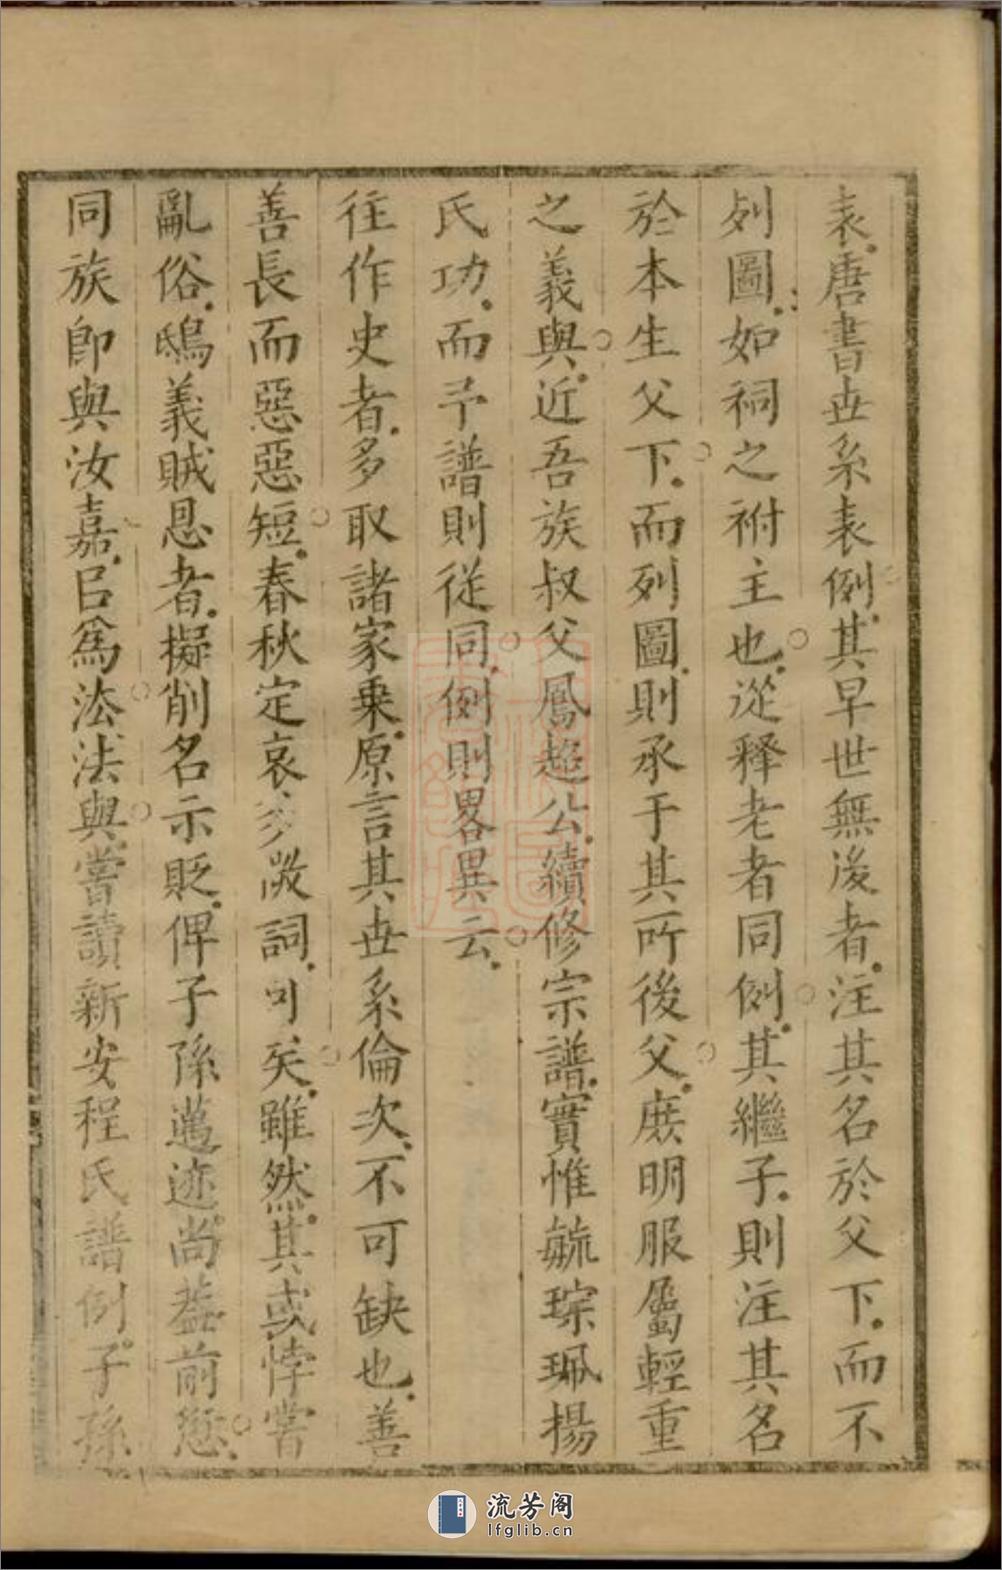 表唐書世系表例其早世無後者注其名於父下而不
列圖如祠之祔主也從釋老者同例其繼子則注其名
於本生父下而列圖則承于其所後父庶明服屬輕重
之義與近吾族叔父鳳超公續修宗譜實惟毓琮珮揚
氏功而予譜則從同例則畧異云
往作史者多取諸家乗原言其世系倫次不可缺也善
善長而惡惡短春秋定哀多微詞可矣雖然其或悖嘗
亂俗鴟義賊恩者擬削名示貶俾子孫邁迹尚蓋前愆
同族卽與汝嘉㠯爲法法與嘗讀新安程氏譜例子孫
流芳阁
lfglib.cn